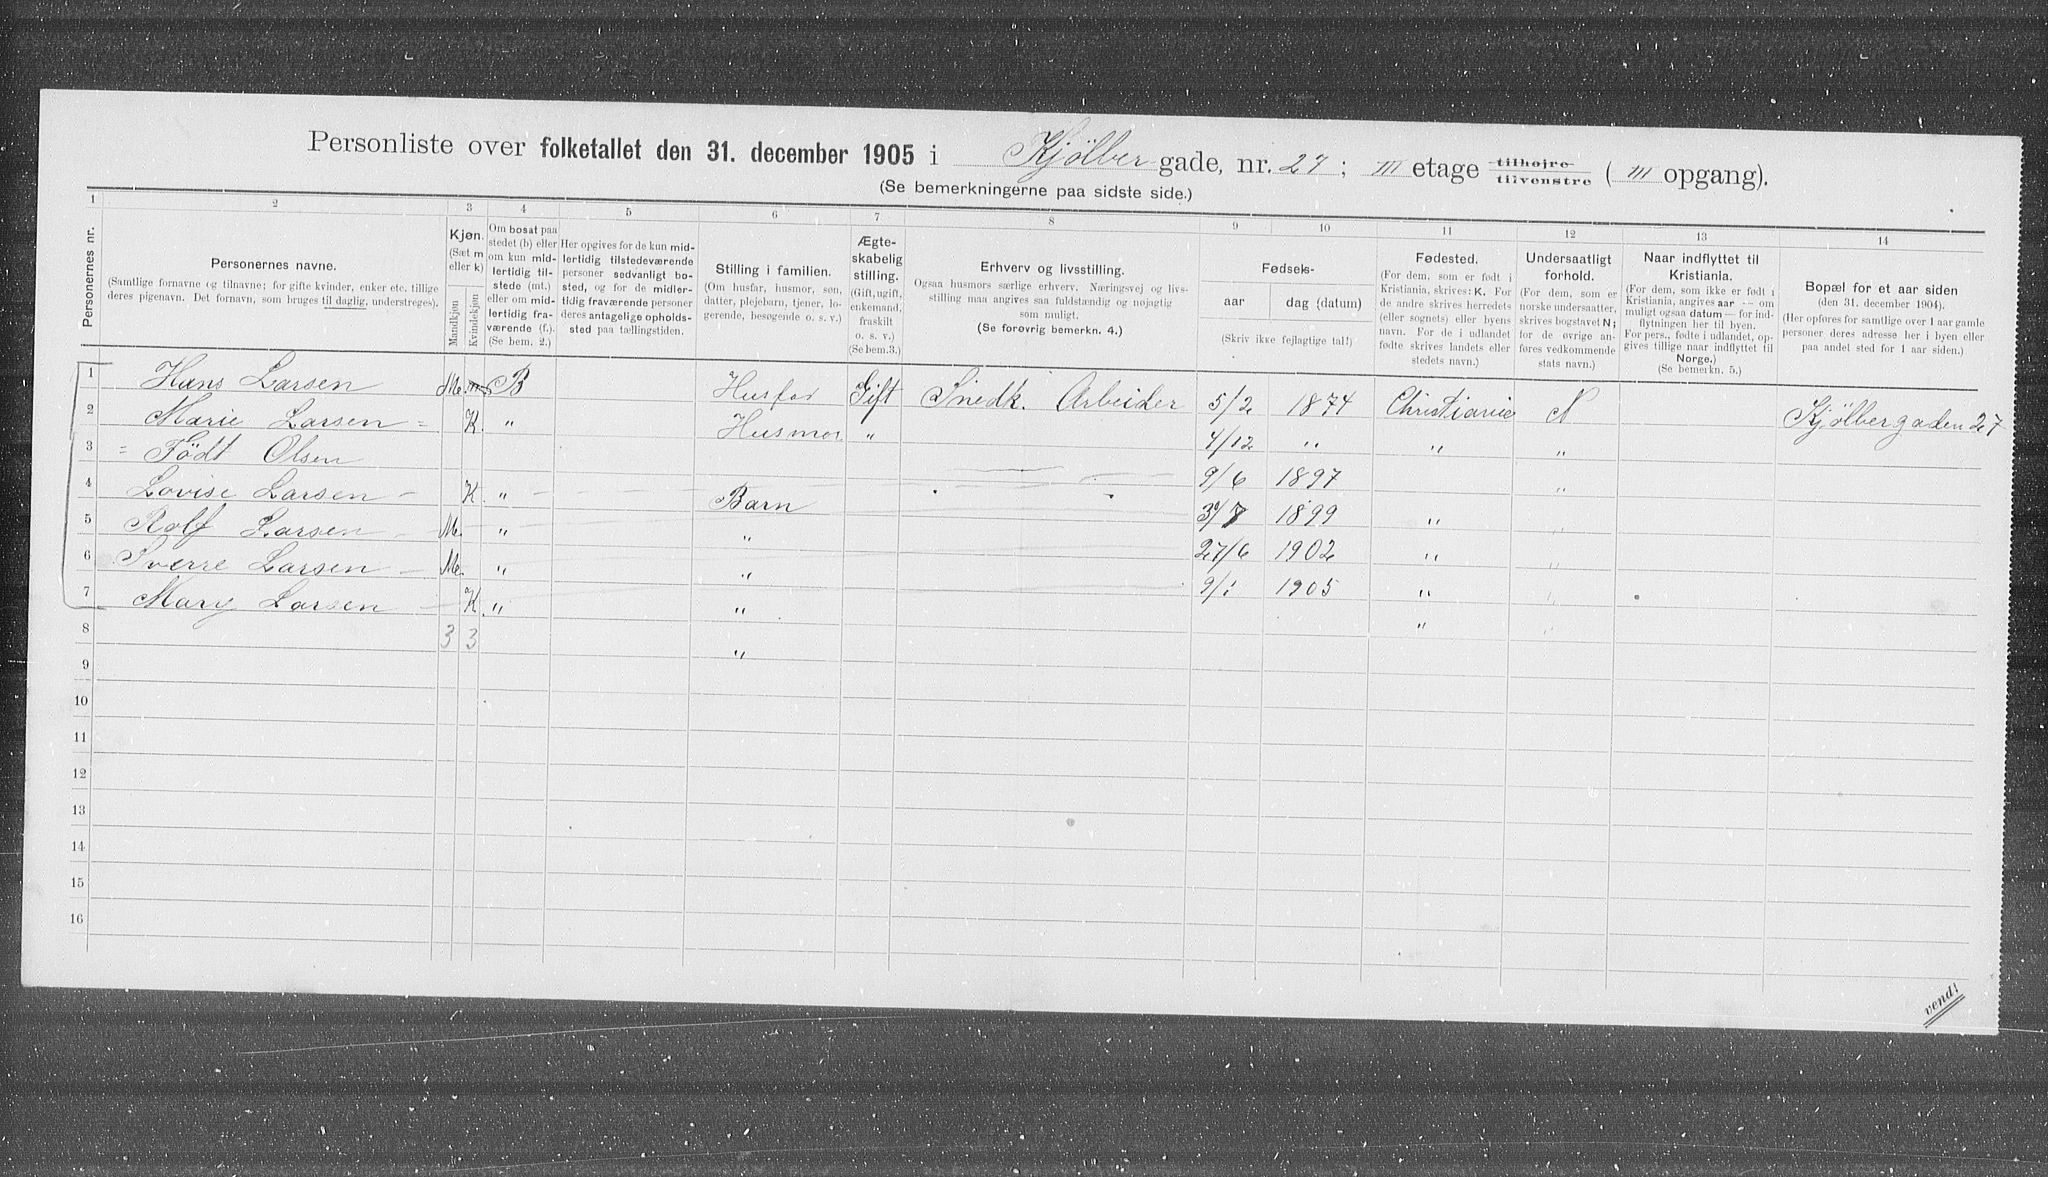 Personliste over folketallet den 31. december 1905 i Kjölber gade, nr. 27; III etage tilhøjre tilvenstre ( III opgang).
(Se bemerkningerne paa sidste side.)
1 2 3 4 5 6 7 8 9 10 11 12 13 14
Personernes nr.
Personernes navne.
(Samtlige fornavne og tilnavne; for gifte kvinder, enker etc. tillige
deres pigenavn. Det fornavn, som bruges til daglig, understreges).
Kjøn.
(Sæt m
eller k)
Mandkjøn
Kvindekjøn
Om bosat paa
stedet (b) eller
om kun midlertidig
tilstede (mt.)
eller om midlertidig
fraværende (f.).
(Se bem. 2.)
Her opgives for de kun midlertidig
tilstedeværende
personer sedvanligt bosted,
og for de midlertidig
fraværende personer
deres antagelige opholdssted
paa tællingstiden.
Stilling i familien.
(Om husfar, husmor, søn,
datter, plejebarn, tjener, logerende,
besøgende o. s. v.)
Ægteskabelig
stilling.
(Gift, ugift,
enkemand,
fraskilt
o. s. v.)
(Se bem.3.)
Erhverv og livsstilling.
Ogsaa husmors særlige erhverv. Næringsvej og livsstilling
maa angives saa fuldstændig og nøjagtig
som muligt.
(Se forøvrig bemerkn. 4.)
Fødsels-
aar
dag (datum)
(Skriv ikke fejlagtige tal!)
Fødested.
(For dem, som er født i
Kristiania, skrives: K. For
de andre skrives herredets
(eller sognets) eller byens
navn. For de i udlandet
fødte skrives landets eller
stedets navn.)
Undersaatligt
forhold.
(For dem, som er
norske undersaatter,
skrives bogstavet N;
for de øvrige anføres
vedkommende
stats navn.)
Naar indflyttet til
Kristiania.
(For dem, som ikke er født i
Kristiania, angives aar — om
muligt ogsaa datum — for indflytningen
her til byen.
For pers., fødte i udlandet, opgives
tillige naar indflyttet til
Norge.)
(Se bemerkn. 5.)
Bopæl for et aar siden
(den 31. december 1904).
(Her opføres for samtlige over 1 aar gamle
personer deres adresse her i byen eller
paa andet sted for 1 aar siden.)
1 Hans Larsen M. B Husfar Gift Snedk. Arbeider 5/2 1874 Christianie N Kjölbergaden 27
2 Marie Larsen = K. " Husmor " 4/12 " " "
3 = Födt Olsen
4 Lovise Larsen – K. " Barn 9/6 1897 " "
5 Rolf Larsen – M. " " 1899 " "
6 Sverre Larsen – M. " " 27/6 1902 " "
7 Mary Larsen – K. " " 9/1 1905 " "
8 3 3 "
9
10
11
12
13
14
15
16
vend!